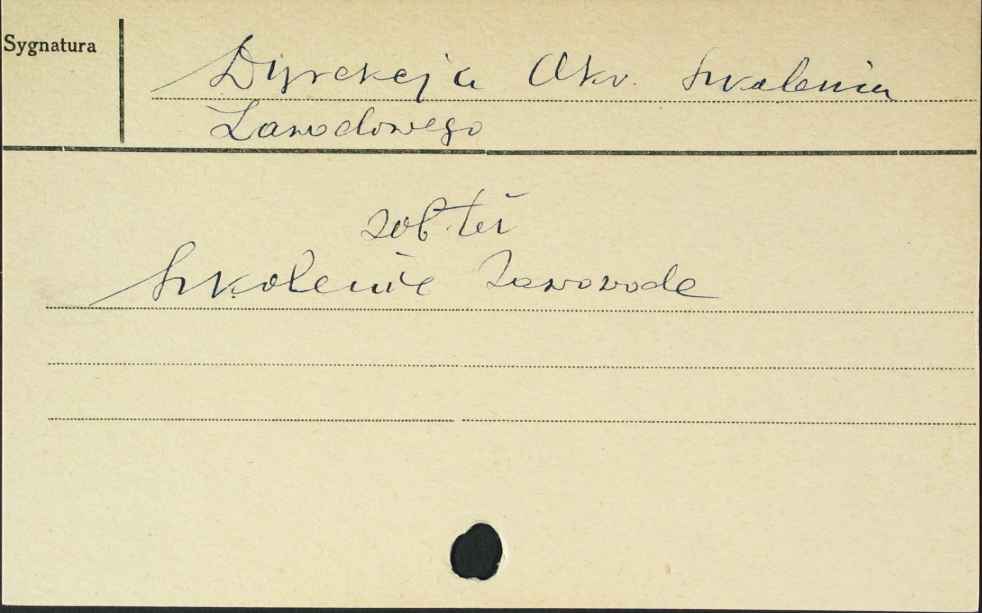 Sygnatura
Dyrekcja Okr. Szkolenia
Zawodowego
zob. też
Szkolenie Zawodowe